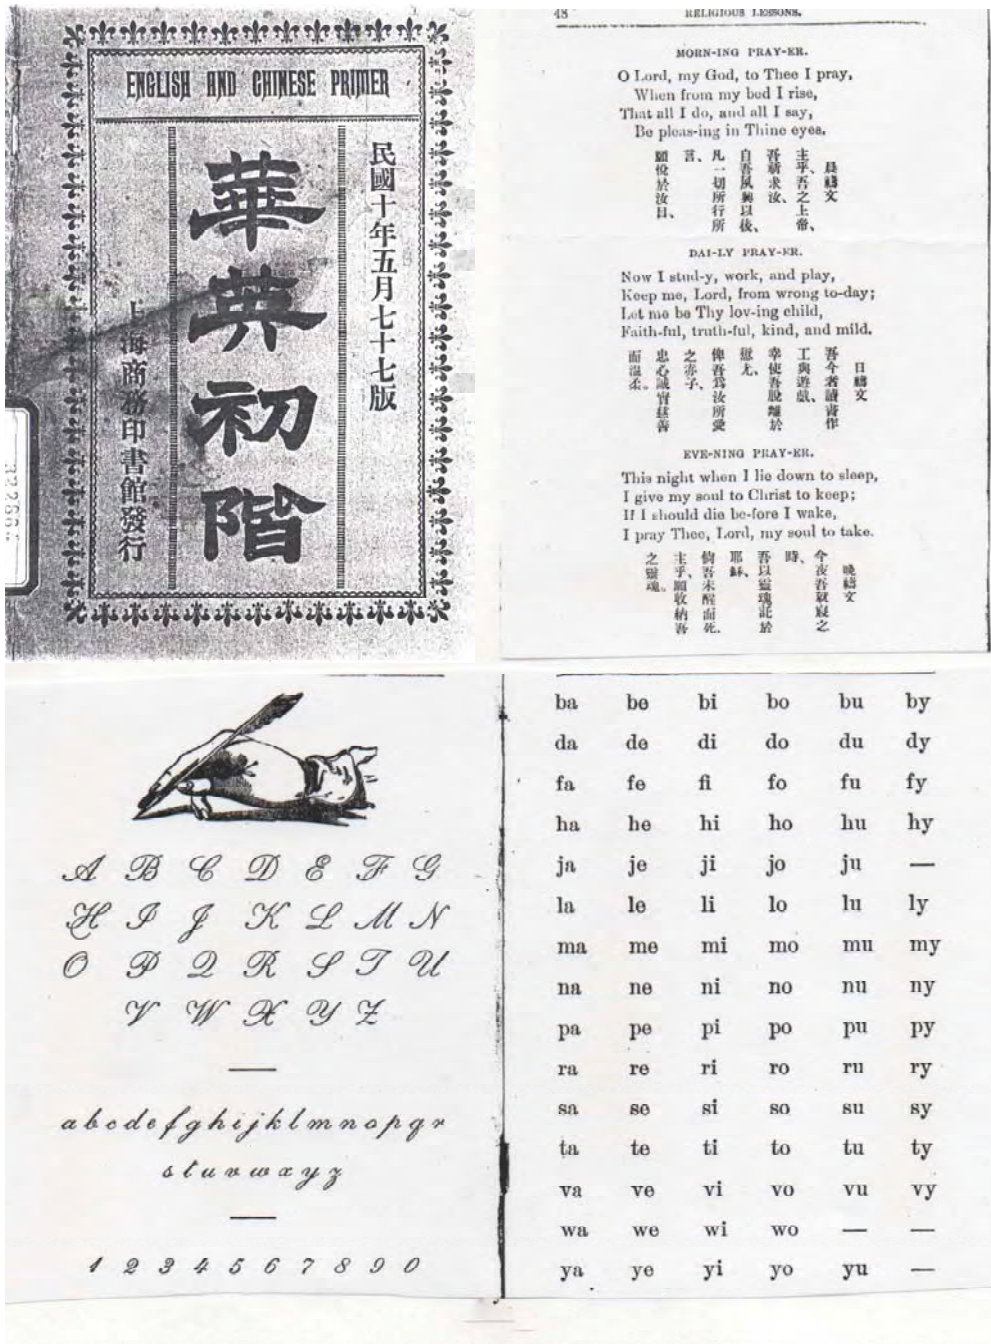 ENGLISH AND CHINESE PRIMER
民國十年五月七十七版
華英初階
上海商務印書館發行
48 RELIGIOUS LESSONS.
MORN-ING PRAY-ER.
O Lord, my God, to Thee I pray,
When from my bed I rise,
That all I do, and all I say,
Be pleas-ing in Thine eyes.
晨禱文
主乎、吾之上帝、
吾祈求汝、
自吾夙興以後、
凡一切所行所
言、
願悅於汝目、
DAI-LY PRAY-ER.
Now I stud-y, work, and play,
Keep me, Lord, from wrong to-day;
Let me be Thy lov-ing child,
Faith-ful, truth-ful, kind, and mild.
日禱文
吾今者讀書作
工與遊戲、
幸使吾脫離於
愆尤、
俾吾爲汝所愛
之赤子、
忠心誠實慈善
而溫柔。
EVE-NING PRAY-ER.
This night when I lie down to sleep,
I give my soul to Christ to keep;
If I should die be-fore I wake,
I pray Thee, Lord, my soul to take.
晚禱文
今夜吾就寢之
時、
吾以靈魂託於
耶穌、
倘吾未醒而死、
主乎、願收納吾
之靈魂。
A B C D E F G
H I J K L M N
O P Q R S T U
V W X Y Z
a b c d e f g h i j k l m n o p q r
s t u v w x y z
1 2 3 4 5 6 7 8 9 0
ba be bi bo bu by
da de di do du dy
fa fe fi fo fu fy
ha he hi ho hu hy
ja je ji jo ju —
la le li lo lu ly
ma me mi mo mu my
na ne ni no nu ny
pa pe pi po pu py
ra re ri ro ru ry
sa se si so su sy
ta te ti to tu ty
va ve vi vo vu vy
wa we wi wo — —
ya ye yi yo yu —